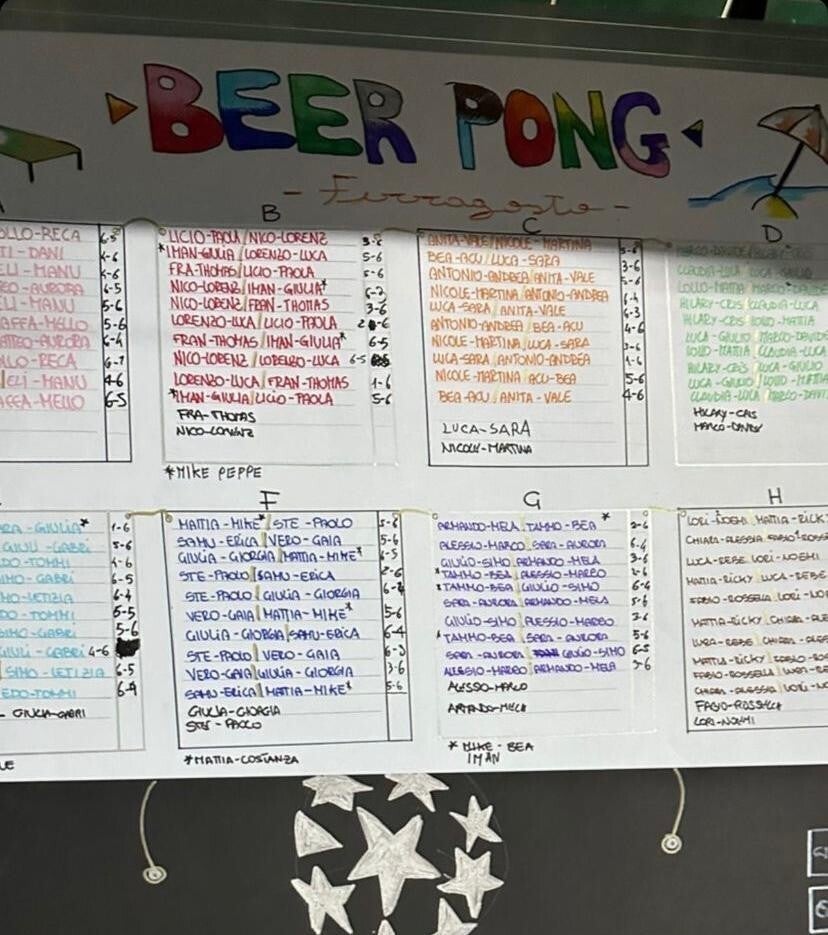 BEER PONG
- Ferragosto -
B
C
D
OLLO-RECA 6-5
TI-DANI
ELI-MANU
EO-AURORA 6-5
ELI-MANU 5-6
AFFA-MELLO 5-6
TTEO-AURORA 6-4
LLO-RECA
ELI-MANU 4-6
AFFA-MELLO 6-5
LICIO-PAOLA/NICO-LORENZ
*IMAN-GIULIA/LORENZO-LUCA 5-6
FRA-THOMAS/LICIO-PAOLA 5-6
NICO-LORENZ/IMAN-GIULIA*
NICO-LORENZ/FRAN-THOMAS 3-6
LORENZO-LUCA/LICIO-PAOLA
FRAN-THOMAS/IMAN-GIULIA* 6-5
NICO-LORENZ/LORENZO-LUCA 6-5
LORENZO-LUCA/FRAN-THOMAS 1-6
*IMAN-GIULIA/LICIO-PAOLA 5-6
FRA-THOMAS
NICO-LORENZ
*MIKE PEPPE
ANITA-VALE/NICOLE-MARTINA
BEA-ACU/LUCA-SARA 3-6
ANTONIO-ANDREA/ANITA-VALE 5-6
NICOLE-MARTINA/ANTONIO-ANDREA 6-4
LUCA-SARA/ANITA-VALE 6-3
ANTONIO-ANDREA/BEA-ACU 4-6
NICOLE-MARTINA/LUCA-SARA 3-6
LUCA-SARA/ANTONIO-ANDREA
NICOLE-MARTINA/ACU-BEA 5-6
BEA-ACU/ANITA-VALE 4-6
LUCA-SARA
NICOLE-MARTINA
CLAUDIA-LUCA/LUCA-GIULIO
LOLLO-MATTIA/MARCO-DAVIDE
HILARY-CRIS/CLAUDIA-LUCA
HILARY-CRIS/LOLLO-MATTIA
LUCA-GIULIO/MARCO-DAVIDE
LOLLO-MATTIA/CLAUDIA-LUCA
HILARY-CRIS/LUCA-GIULIO
LUCA-GIULIO/LOLLO-MATTIA
CLAUDIA-LUCA/MARCO-DAVI
HILARY-CRIS
MARCO-DAVIDE
F
G
H
RA-GIULIA* 1-6
GIULI-GABRI 5-6
DO-TOMMI 4-6
IMO-GABRI 6-5
MO-LETIZIA 6-4
DO-TOMMI 6-5
SIMO-GABRI 5-6
GIULI-GABRI 4-6
SIMO-LETIZIA 6-5
EDO-TOMMI 6-4
- GIULIA-GABRI
LE
MATTIA-MIKE*/STE-PAOLO 5-6
SAMU-ERICA/VERO-GAIA 5-6
GIULIA-GIORGIA/MATTIA-MIKE* 6-5
STE-PAOLO/SAMU-ERICA 2-6
STE-PAOLO/GIULIA-GIORGIA
VERO-GAIA/MATTIA-MIKE* 5-6
GIULIA-GIORGIA/SAMU-ERICA 6-4
STE-PAOLO/VERO-GAIA 6-3
VERO-GAIA/GIULIA-GIORGIA 3-6
SAMU-ERICA/MATTIA-MIKE* 5-6
GIULIA-GIORGIA
STE-PAOLO
*MATTIA-COSTANZA
ARMANDO-MELA/TAMMO-BEA* 2-6
ALESSIO-MARCO/SARA-AURORA 6-4
GIULIO-SIMO/ARMANDO-MELA 3-6
*TAMMO-BEA/ALESSIO-MARCO
*TAMMO-BEA/GIULIO-SIMO 6-4
SARA-AURORA/ARMANDO-MELA 5-6
GIULIO-SIMO/ALESSIO-MARCO
*TAMMO-BEA/SARA-AURORA 5-6
SARA-AURORA/GIULIO-SIMO 6-5
ALESSIO-MARCO/ARMANDO-MELA
ALESSIO-MARCO
ARMANDO-MELA
*MIKE-BEA
IMAN
LORI-NOEMI/MATTIA-RICKY
CHIARA-ALESSIA/FABIO-ROSS
LUCA-BEBE/LORI-NOEMI
MATTIA-RICKY/LUCA-BEBE
FABIO-ROSSELLA/LORI-NO
MATTIA-RICKY/CHIARA-ALE
LUCA-BEBE/CHIARA-ALES
MATTIA-RICKY/FABIO-ROS
FABIO-ROSSELLA/LUCA-BE
CHIARA-ALESSIA/LORI-N
FABIO-ROSSELLA
LORI-NOEMI